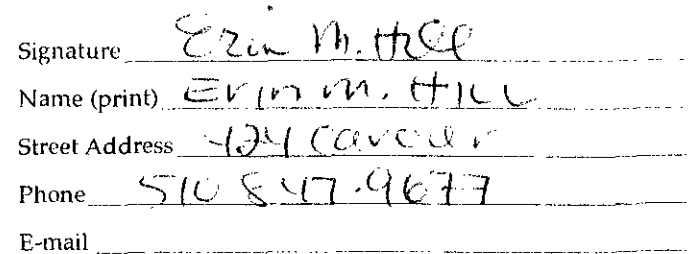 Signature Erin M. Hill
Name (print) Erin M. Hill
Street Address 424
Phone 510 847.9677
E-mail